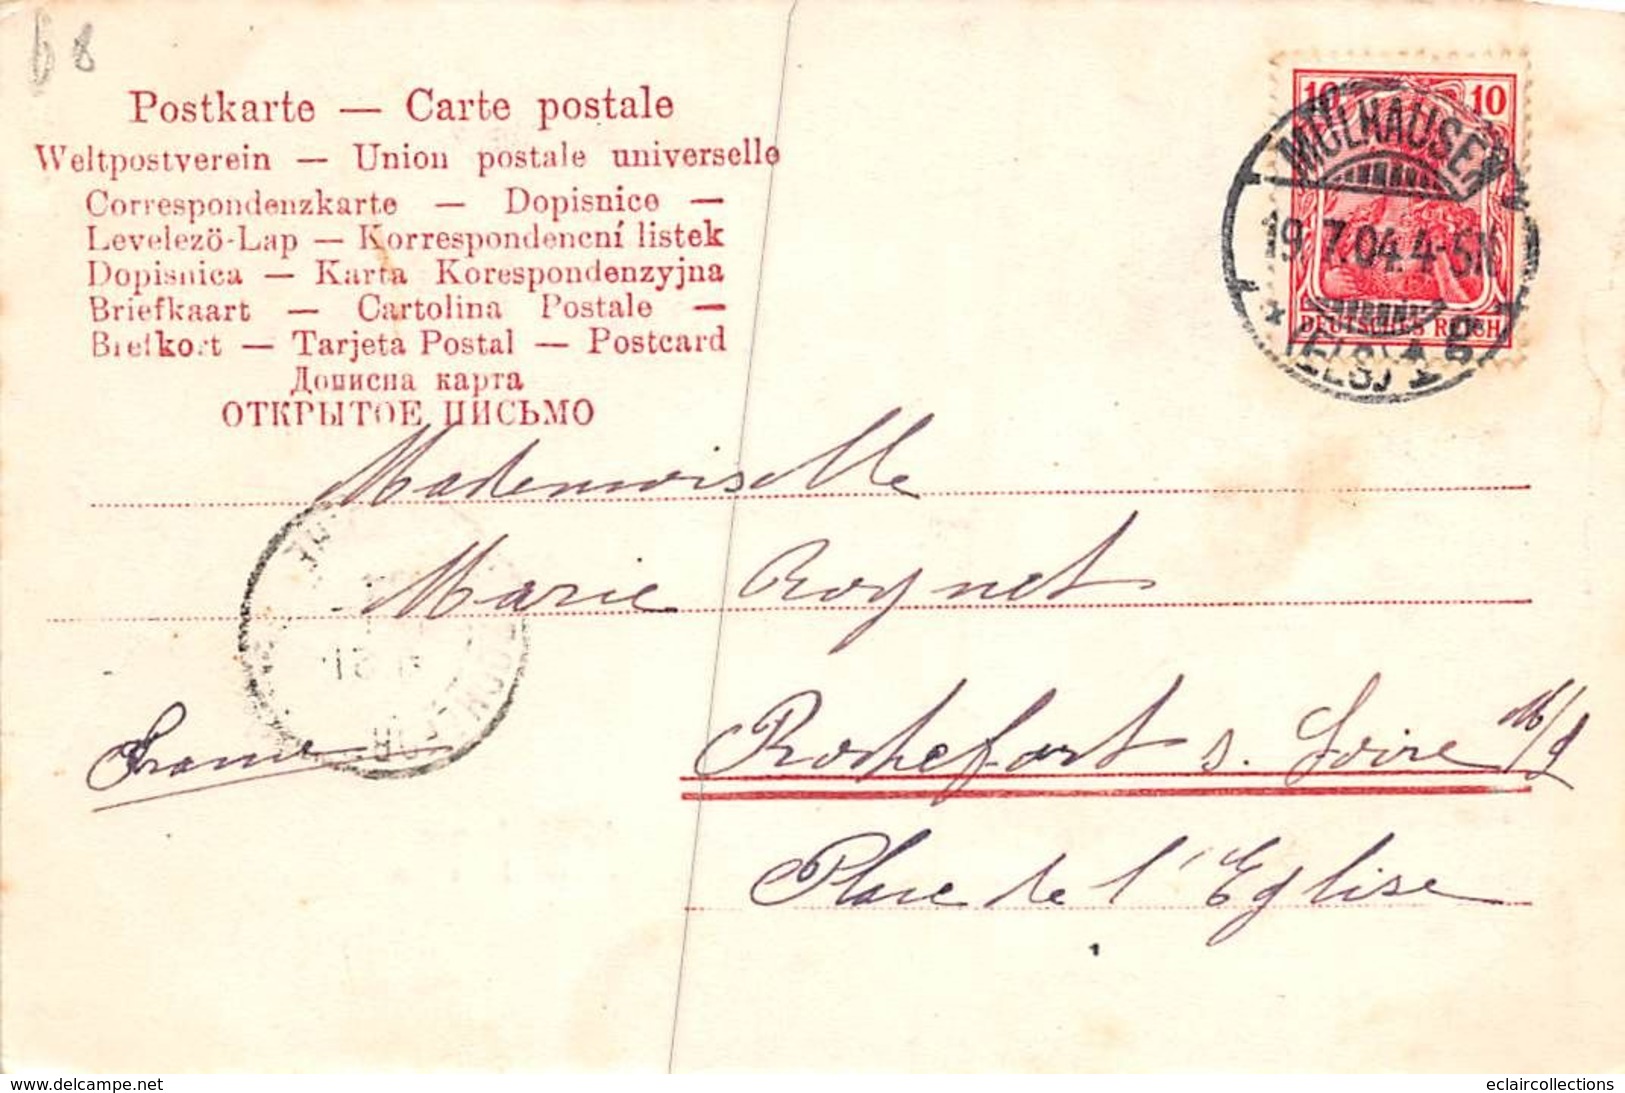 68
Postkarte — Carte postale
Weltpostverein — Union postale universelle
Correspondenzkarte — Dopisnice —
Levelezö-Lap — Korrespondencní listek
Dopisnica — Karta Korespondenzyjna
Briefkaart — Cartolina Postale —
Brefkort — Tarjeta Postal — Postcard
Дописна карта
ОТКРЫТОЕ ПИСЬМО
10 10
DEUTSCHES REICH
MÜLHAUSEN
19.7.04.4-5N
(ELS) 1 g
Mademoiselle
Marie Rognet
Rochefort s. Loire M/L
Place de l'Eglise
France
www.delcampe.net
eclaircollections